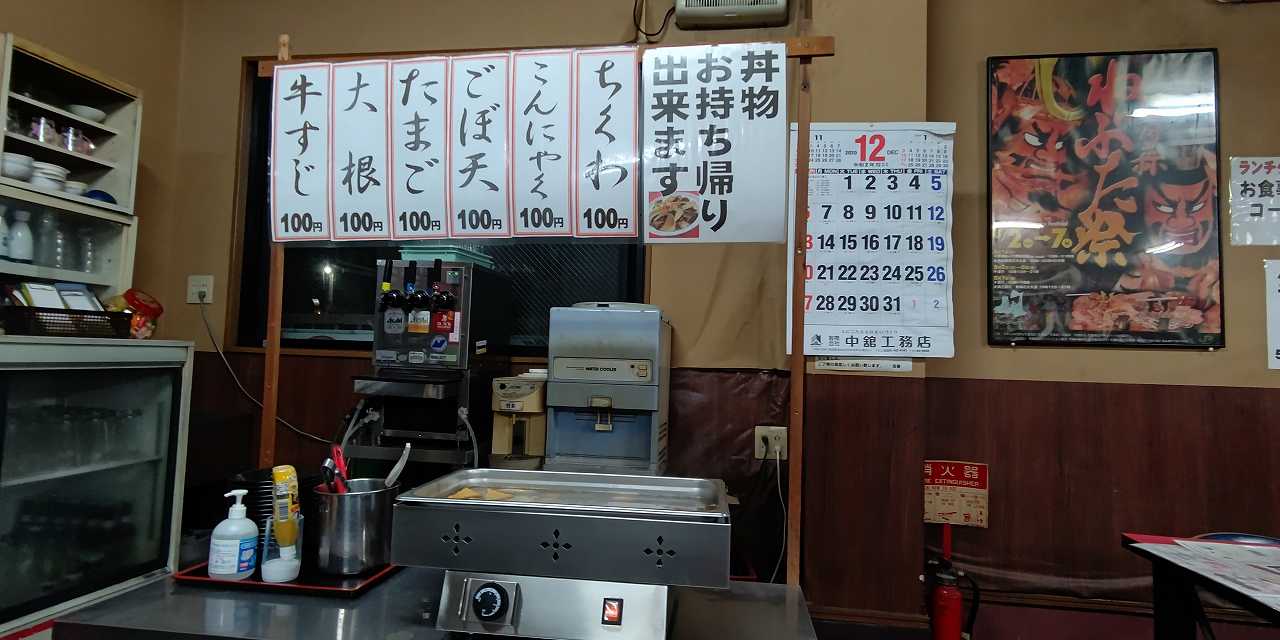 丼物
お持ち帰り
出来ます
ちくわ
100円
こんにゃく
100円
ごぼ天
100円
たまご
100円
大根
100円
牛すじ
100円
11
12
DEC
1
MON TUE WED THU FRI SAT
1 2 3 4 5
7 8 9 10 11 12
14 15 16 17 18 19
21 22 23 24 25 26
28 29 30 31 1 2
中舘工務店
ねぶた祭
2 7
ランチ
お食事
コー
Asahi
WATER COOLER
消火器
FIRE EXTINGUISHER